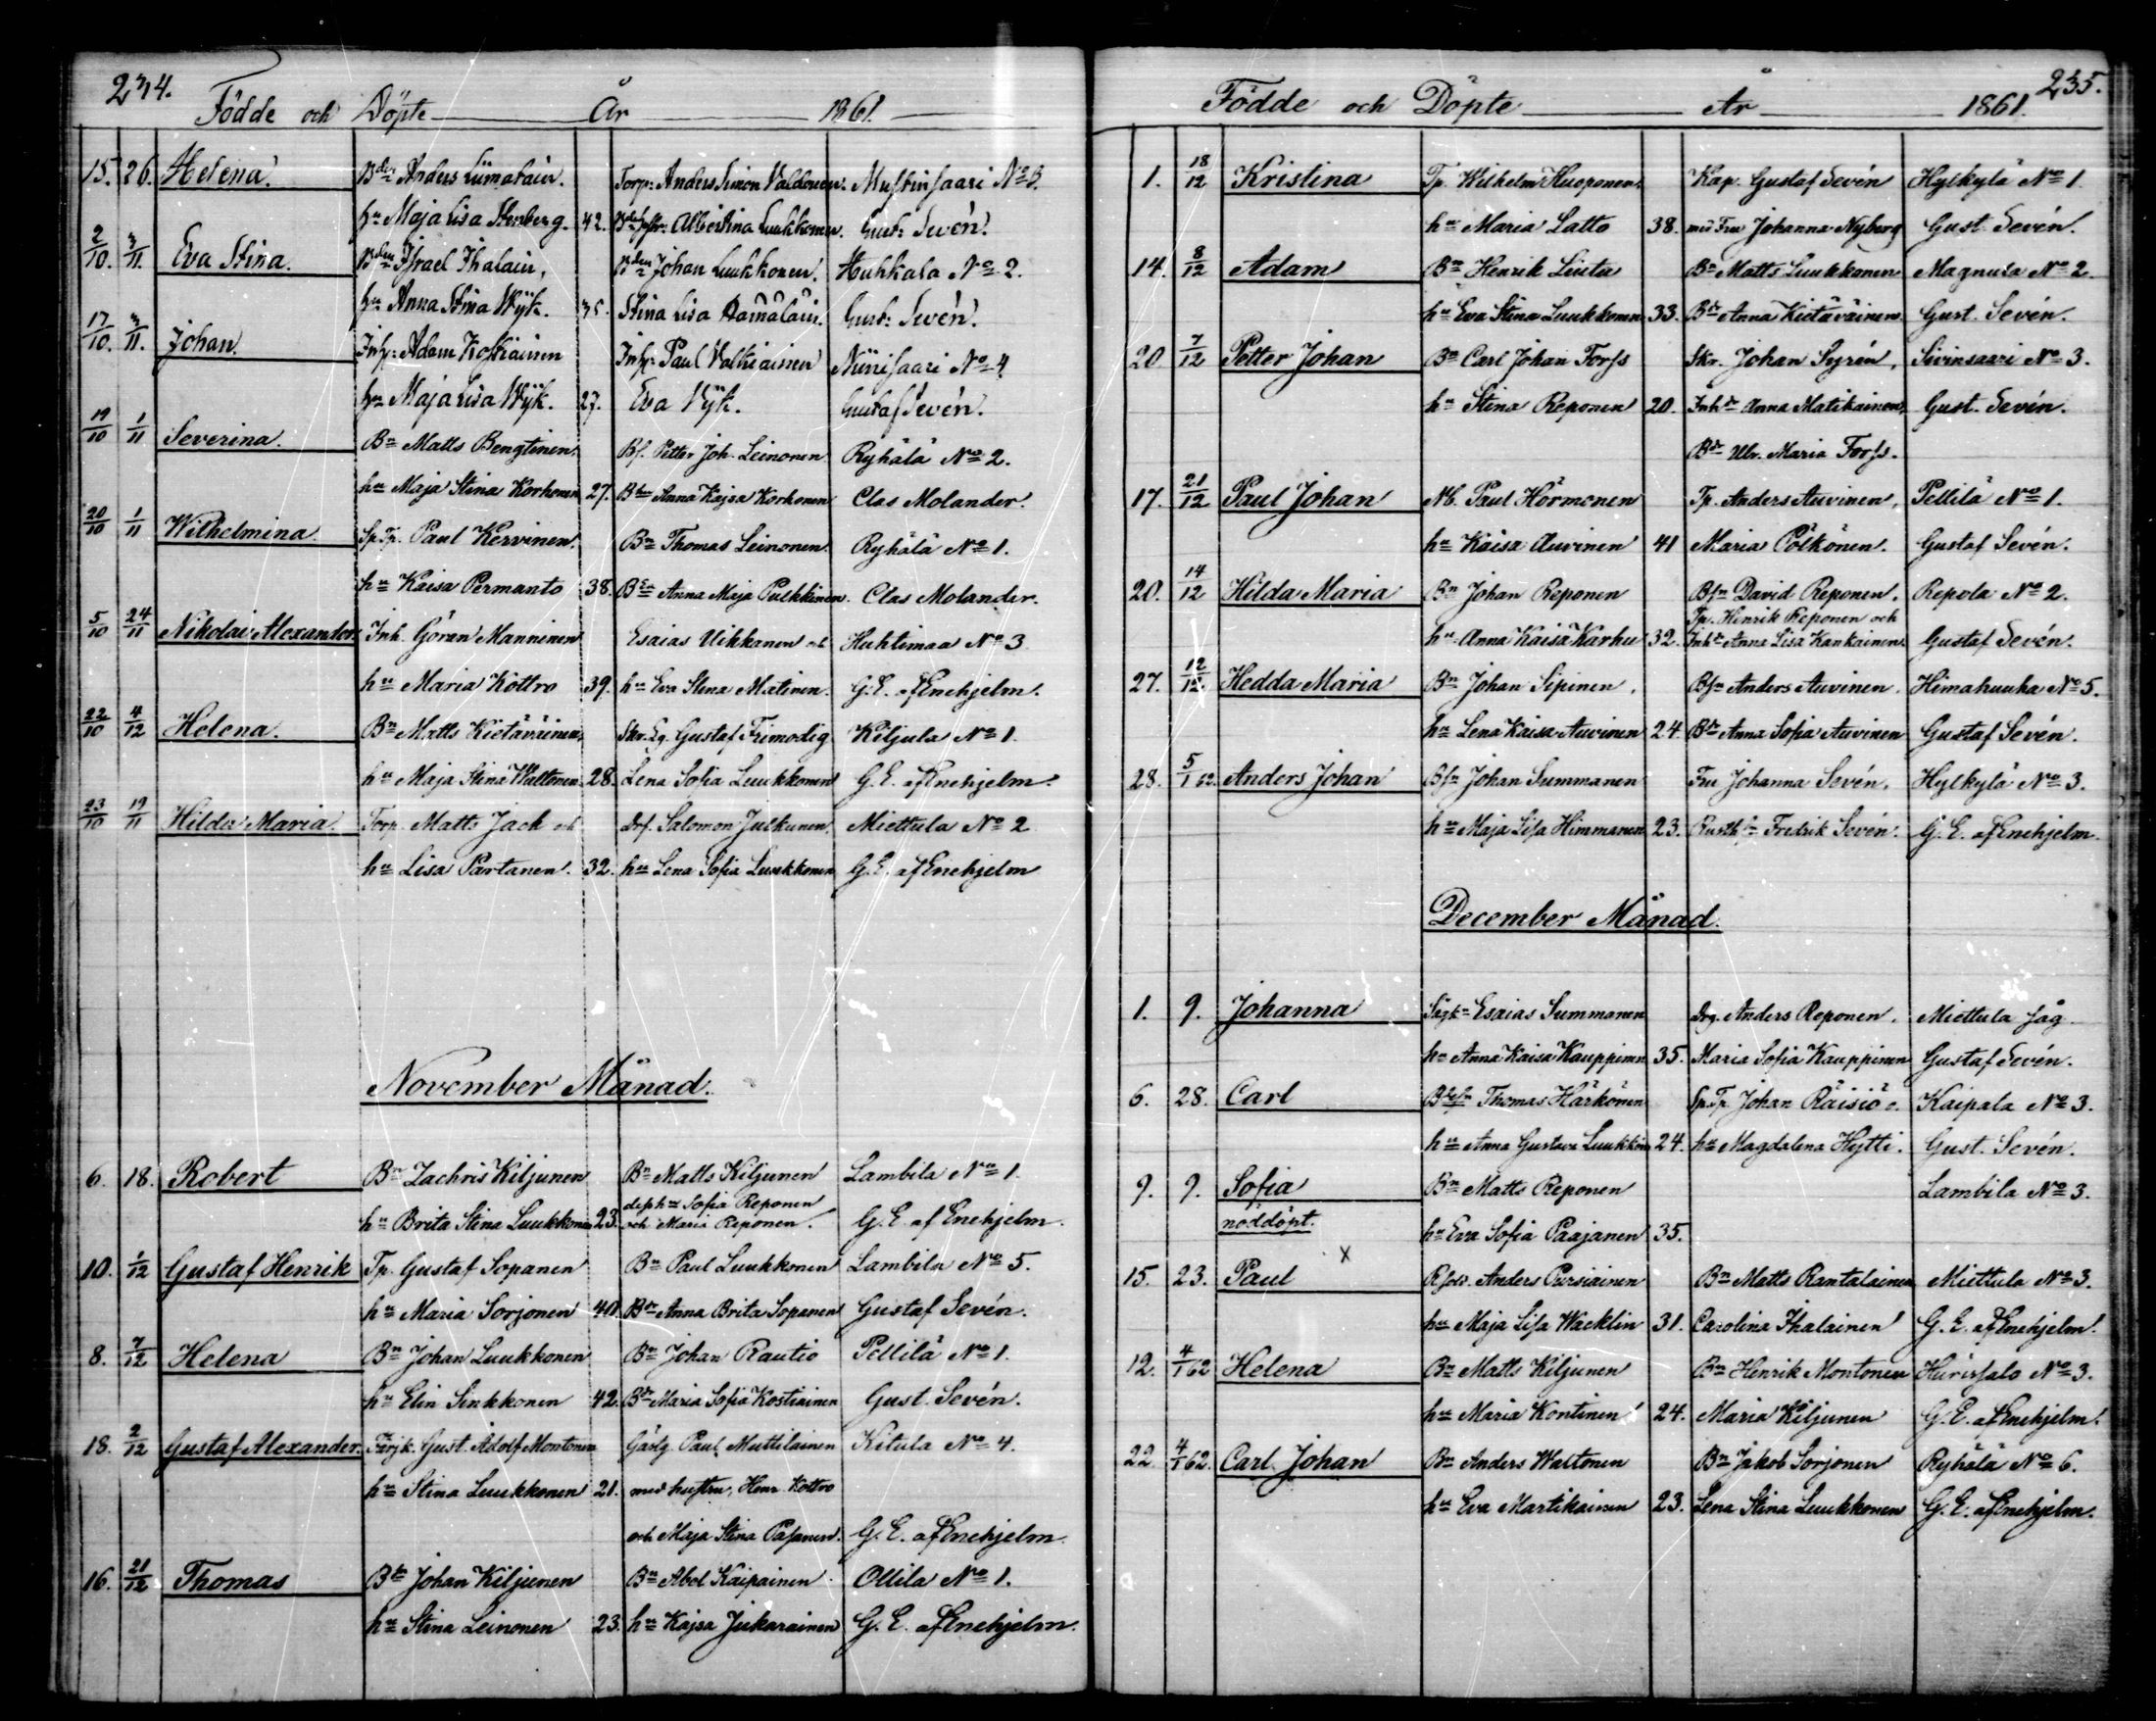 234.
Födde och Döpte År 1861.
15. 26. Helena. Bden Anders Liimatain. Torp: Anders Simon Valdonen. Mustinsaari No 3.
hu Maja Lisa Stenberg. 42. Albertina Luukkonen. Gust: Sevén.
2/10. 3/11. Eva Stina. Bden Israel Ihalain, Bden Johan Luukkonen. Huhkala No 2.
hu Anna Stina Wÿk. 35. Stina Lisa Hämäläin. Gust: Sevén.
17/10. 3/11. Johan. Inh: Adam Kostiainen Inh: Paul Valkiainen Niinisaari No 4
hu Maja Lisa Wÿk. 27. Eva Vÿk. Gustaf Sevén.
19/10 1/11 Severina. Bn Matts Bengtinen Bs. Petter Joh. Leinonen Ryhälä No 2.
hu Maja Stina Korhonen 27. Anna Kajsa Korhonen Clas Molander.
20/10 1/11 Wilhelmina. Sp.Tp. Paul Kervinen. Bn Thomas Leinonen. Ryhälä No 1.
hu Kaisa Permanto 38. Anna Maja Pulkkinen. Clas Molander.
5/10 24/11 Nikolai Alexander. Inh. Göran Manninen Esaias Uikkanen och Huhtimaa No 3
hu Maria Kottro 39. hu Eva Stina Matinen. G. E. af Enehjelm.
22/10 4/12 Helena. Bn Matts Kietäväinen, Gustaf Frimodig Kiljula No 1.
hu Maja Stina Waltonen 28. Lena Sofia Luukkonen G. E. af Enehjelm.
23/10 19/11 Hilda Maria. Torp. Matts Jack och Drf. Salomon Julkunen. Miettula No 2
hu Lisa Partanen. 32. hu Lena Sofia Luukkonen G. E. af Enehjelm
November Månad.
6. 18. Robert Bn Zachris Kiljunen Bn Matts Kiljunen Lambila No 1.
Sofia Reponen
hu Brita Stina Luukkonen 23. och Maria Reponen. G. E. af Enehjelm.
10. 1/12 Gustaf Henrik Tp. Gustaf Sopanen Bn Paul Luukkonen Lambila No 5.
hu Maria Sorjonen 40 Bdr Anna Brita Sopanen Gustaf Sevén.
8. 7/12 Helena Bn Johan Luukkonen Bn Johan Rautio Pellilä No 1.
hu Elin Sinkkonen 42. Bdr Maria Sofia Kostiainen Gust. Sevén.
18. 2/12 Gustaf Alexander. Färjk. Gust. Adolf Montonen Gästg. Paul Muttilainen Kitula No 4.
hu Stina Luukkonen 21. med hustru, Henr. Kottro
och Maja Stina Pasanen. G. E. af Enehjelm
16. 21/12 Thomas Johan Kiljunen Bn Abel Kaipainen Ollila No 1.
hu Stina Leinonen 23. hu Kajsa Jukarainen G. E. af Enehjelm.
235.
Födde och Döpte År 1861.
1. 18/12 Kristina Tp. Wilhelm Kuoponen. Kap. Gustaf Sevén Hylkylä No 1.
hu Maria Latto 38. med Fru Johanna Nyberg Gust. Sevén.
14. 8/12 Adam Bn Henrik Liuta Bn Matts Luukkonen Magnusa No 2.
hu Eva Stina Luukkonen 33. Bdr Anna Kietäväinen Gust. Sevén.
20 7/12 Petter Johan Bn Carl Johan Forss Skr. Johan Syrén, Sivinsaari No 3.
hu Stina Reponen 20. Inhdr Anna Matikainen, Gust. Sevén.
Bdr Ulr. Maria Forss.
17. 21/12 Paul Johan Nb. Paul Hörmonen Tp. Anders Auvinen, Pellilä No 1.
hu Kaisa Auvinen 41 Maria Pölkönen. Gustaf Sevén.
20. 14/12 Hilda Maria Bn Johan Reponen Bsn David Reponen, Repola No 2.
Tp. Henrik Reponen och
hu Anna Kaisa Karhu 32. Inhdr Anna Lisa Kankainen Gustaf Sevén.
27. 12/12 Hedda Maria Bn Johan Sipinen, Bsn Anders Auvinen. Himahuuha No 5.
hu Lena Kaisa Auvinen 24. Bdr Anna Sofia Auvinen Gustaf Sevén.
28. 5/1 62. Anders Johan Bsn Johan Summanen Fru Johanna Sevén. Hylkylä No 3.
hu Maja Lisa Himmanen 23. Fredrik Sevén. G. E. af Enehjelm.
December Månad.
1. 9. Johanna Sågk. Esaias Summanen Drg. Anders Reponen. Miettula såg
hu Anna Kaisa Kauppinen 35. Maria Sofia Kauppinen Gustaf Sevén.
6. 28. Carl Thomas Härkönen Sp.Tp. Johan Räisiö o. Kaipala No 3.
hu Anna Gustava Luukkonen 24. hu Magdalena Hytti. Gust. Sevén.
9. 9. Sofia Bn Matts Reponen Lambila No 3.
nöddöpt. hu Eva Sofia Paajanen 35.
X
15. 23. Paul Anders Pursiainen Bn Matts Rantalainen Miettula No 3.
hu Maja Lisa Wacklin 31. Carolina Ihalainen G. E. af Enehjelm.
12. 4/1 62 Helena Bn Matts Kiljunen Bn Henrik Montonen Hurissalo No 3.
hu Maria Kontinen 24. Maria Kiljunen G. E. af Enehjelm.
22 4/1 62. Carl Johan Bn Anders Waltonen Bn Jakob Sorjonen Ryhälä No 6.
hu Eva Martikainen 23. Lena Stina Luukkonen G. E. af Enehjelm.